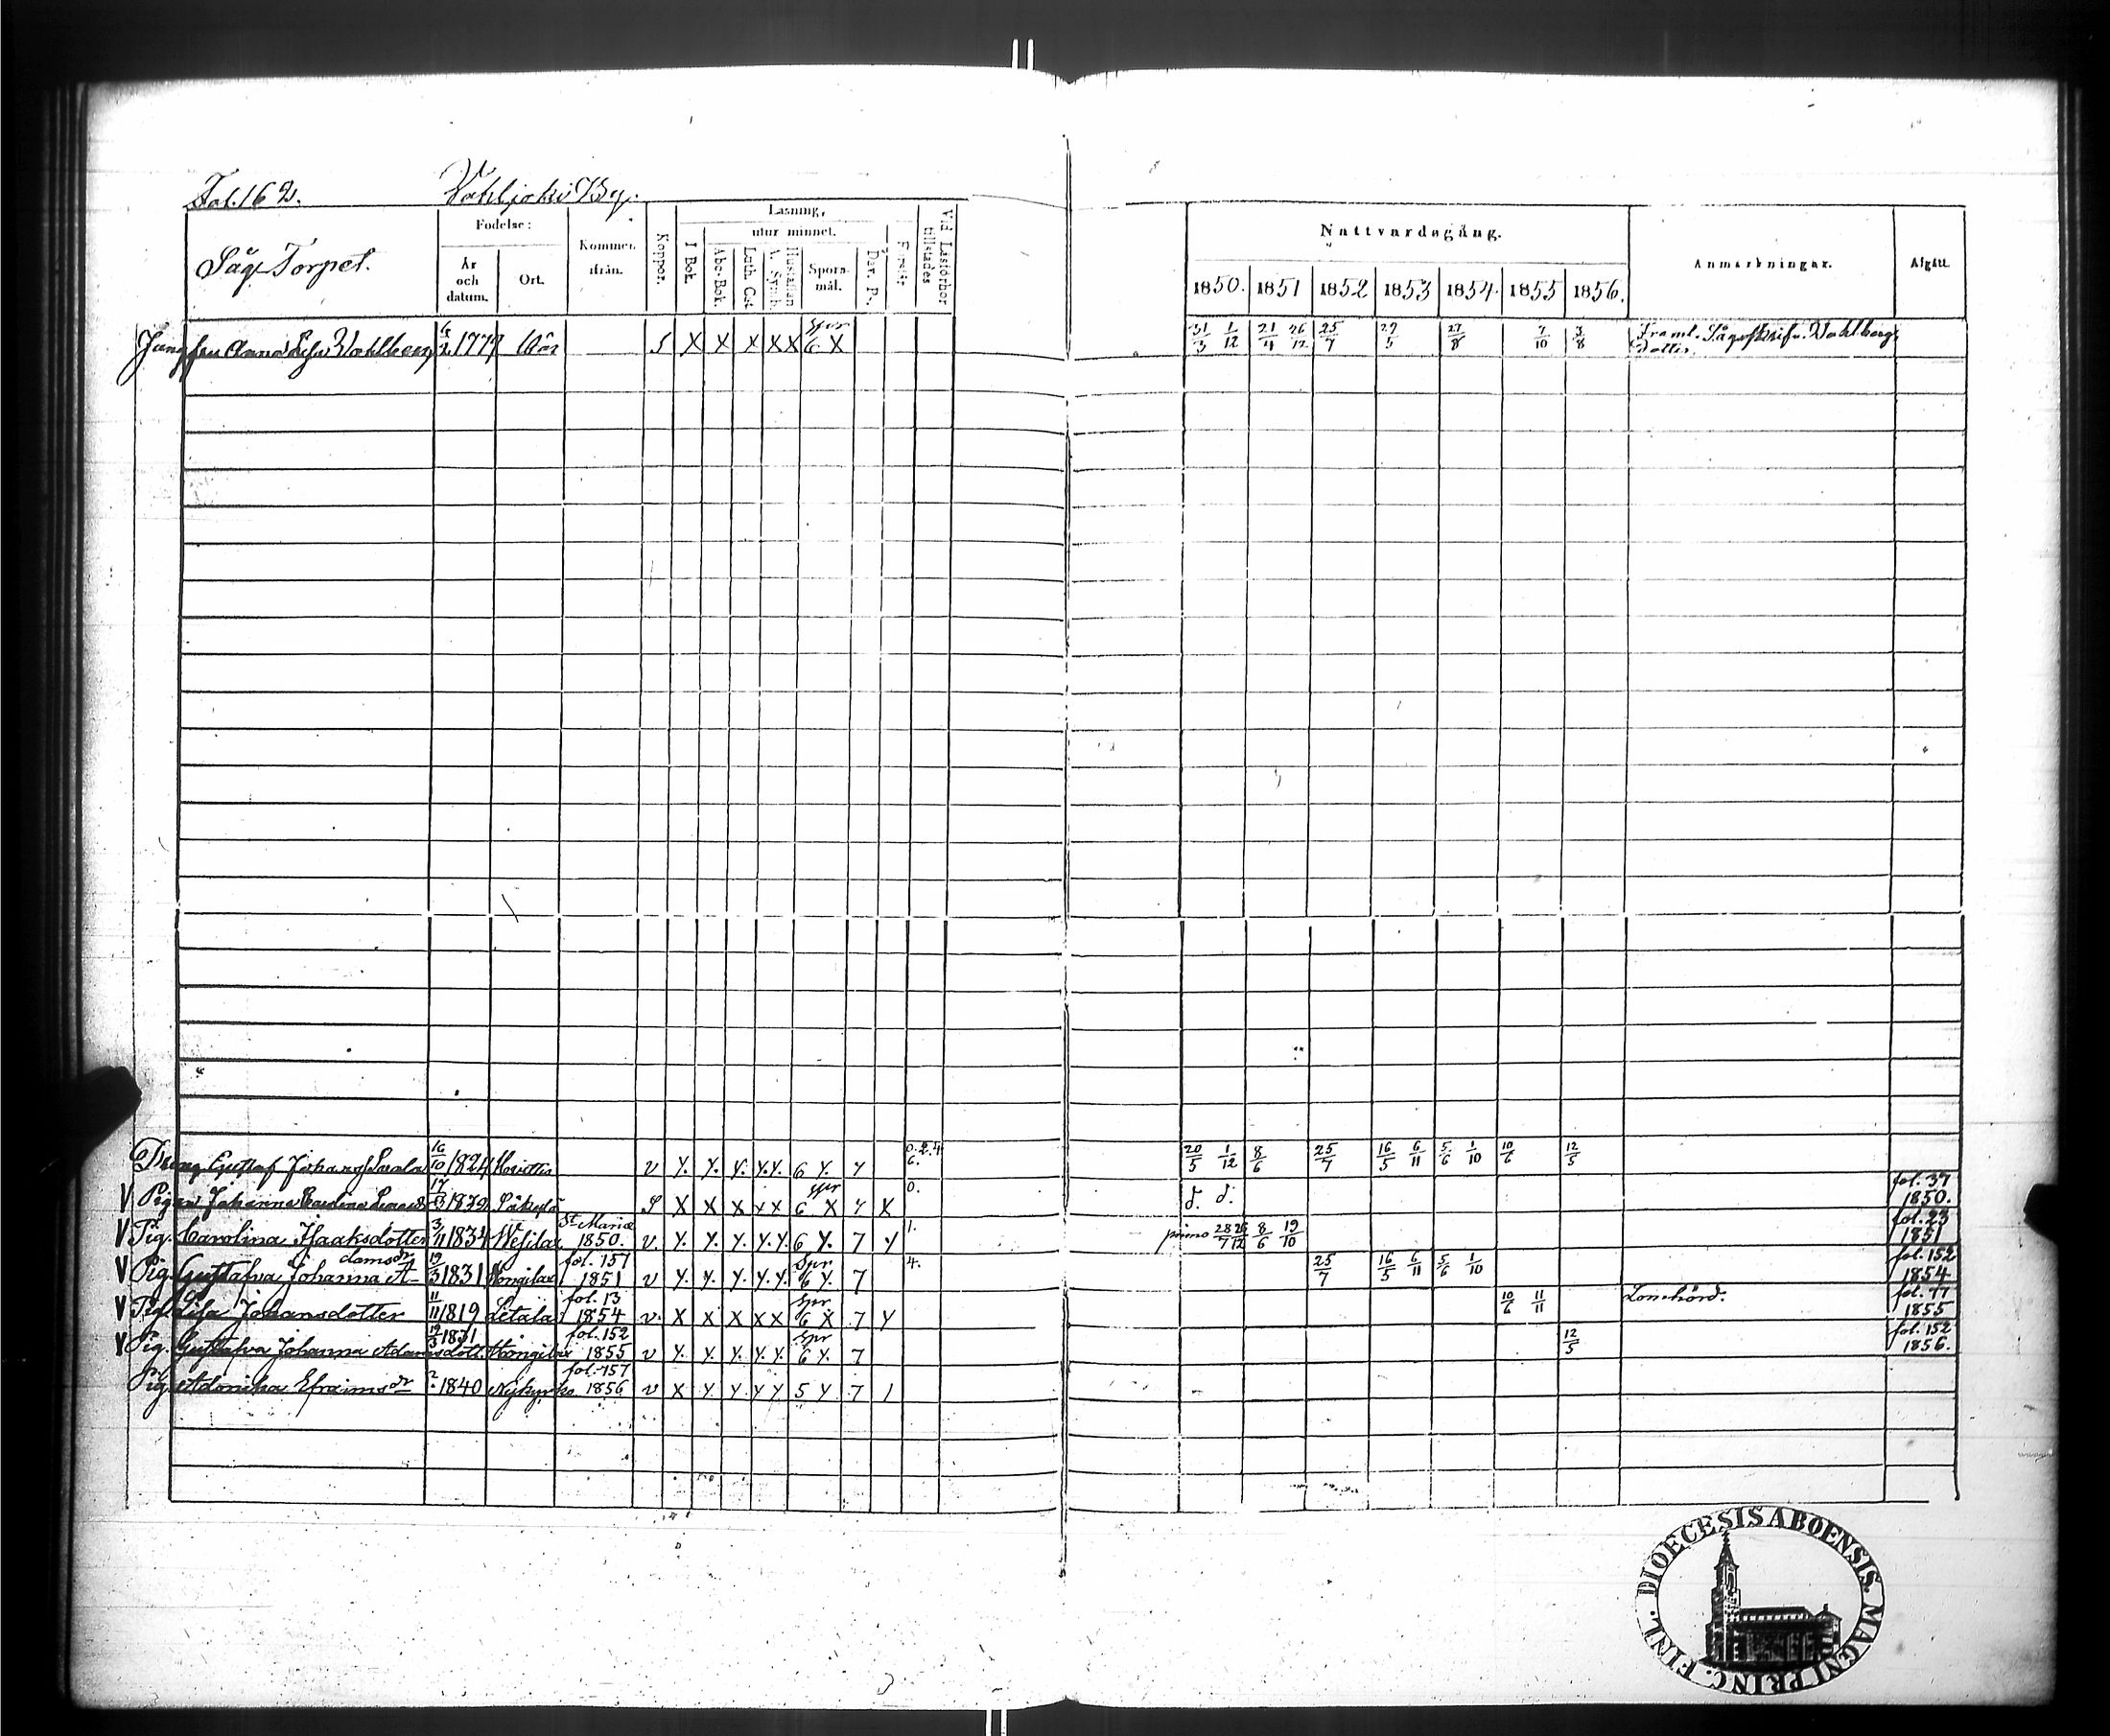 Fol. 162.
Vahljoki By.
Såg-Torpet.
Födelse:
År och datum.
Ort.
Kommer ifrån.
Koppor.
Läsning,
utur minnet.
I Bok.
Abc-Bok.
Luth. Cat.
Hustaflan A. Symb.
Sporsmål.
Dav. Ps.
Förstår
Vid Läsförhör tillstädes
Nattvardsgång.
1850. 1851 1852 1853 1854. 1855 1856.
Anmärkningar.
Afgått.
Jungfru Anna Lisa Wahlberg 1777 S X X X X X spr 6 X 31/3 1/12 21/4 26/12 25/7 29/5 27/8 7/10 3/8 Framl. Wahlbergs
dotter.
Dreng Gustaf Johansson 16/10 1824 v y. y. y. y. y. 6 y. 7 0.2.4 6. 20/5 1/12 8/6 25/7 16/5 6/11 5/6 1/10 10/6 12/5
V Pigan Johanna Carolina 17 S X X X X X spr 6 X 7 X 0. fol. 37 1850.
V Pig. Carolina Isaaksdotter 3/11 1834 St Mariæ 1850. v. y. y. y. y. y. 6 y. 7 y 1. primo 28/7 26/12 8/6 19/10 fol. 23 1851
V Pig. Gustafva Johanna Adamsdr 19/3 1831 fol. 157 1851 v y. y. y. y. y. Spr 6 y. 7 4. 25/7 16/5 6/11 5/6 1/10 fol. 152 1854
V Pig. Lisa Johansdotter 11/11 1819 Letala fol. 13 1854 v. X X X X X Spr 6 X 7 y 10/6 11/11 Lomhörd. fol. 77 1855
V Pig. Gustafva Johanna Adamsdott. 19/3 1831 fol. 152 1855 v y. y. y. y. y. Spr 6 y. 7 12/5 fol. 152 1856.
Pig. Adonika Efraimsdr ? 1840 Nykyrko fol. 157 1856 v X y. y y y 5 y 7 1
DIOECESIS ABOENSIS. MAGNI PRINC. FINL.